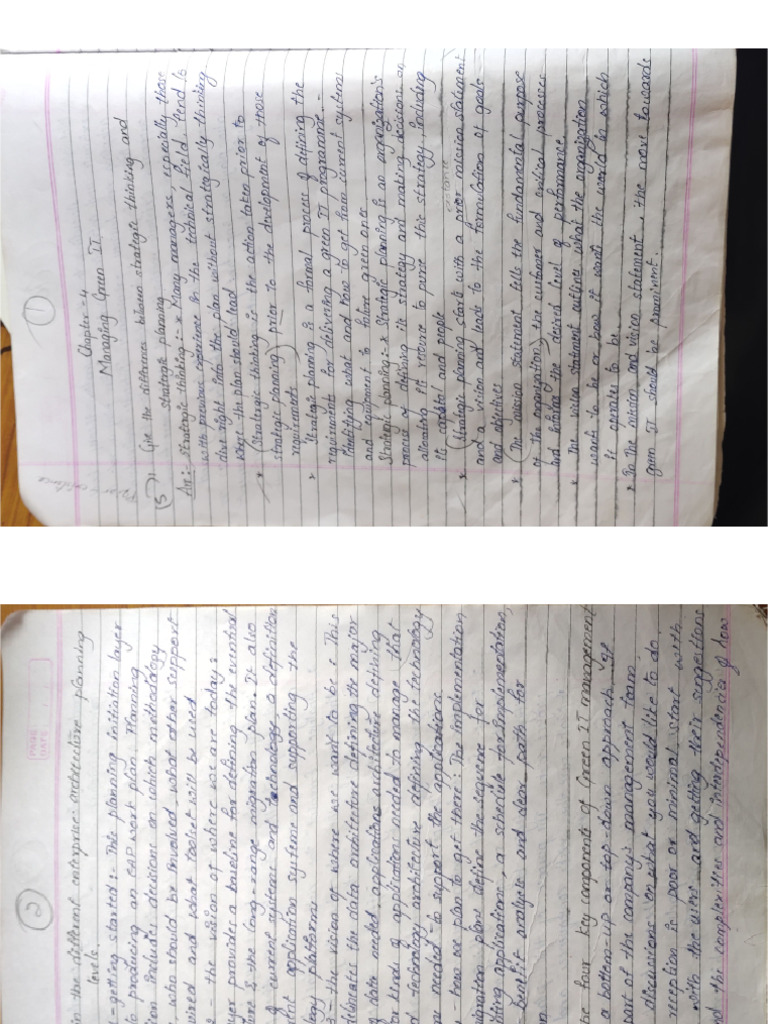 1
Chapter-4
Managing Green IT.
(5) Give the difference between strategic thinking and
strategic planning
Ans:- Strategic thinking:- * Many managers, especially those
with previous experience in the technical field, tend to
dive right into the plan without strategically thinking
where the plan should lead
* (Strategic thinking is the action taken prior to
strategic planning) prior to the development of those
requirements
* Strategic planning is a formal process of defining the
requirements for delivering a green IT programme.-
Identifying what and how to get from current systems
and equipment to future green ones
Strategic planning:- * Strategic planning is an organization's
process of defining its strategy and making decisions on
allocating its resource to pursue this strategy, including
its capital and people
* (Strategic planning starts with a prior mission statement
and a vision and leads to the formulation of goals
and objectives
* (The mission statement tells the fundamental purpose
of the organization) the customer and critical processes
and the desired level of performance.
* The vision statement outlines what the organization
wants to be or how it wants the world in which
it operates to be.
* In the mission and vision statement, the move towards
Green IT should be prominent.
2
PAGE
DATE
in the different enterprise architecture planning
levels.
- getting started:- This planning initiation layer
to producing an EAP work plan. Planning
includes decisions on which methodology
who should be involved, what other support
and what toolset will be used
- the vision of where we are today:
provides a baseline for defining the eventual
& the long-range migration plan. It also
of current systems and technology, a definition
application systems and supporting the
platforms
- the vision of where we want to be: This
the data architecture defining the major
of data needed, applications architecture defining
kinds of applications needed to manage that
technology architecture defining the technology
needed to support the applications
- how we plan to get there: The implementation
migration plans define the sequence for
applications, a schedule for implementation,
benefit analysis and clear path for
the four key components of Green IT management
a bottom-up or top-down approach, get
part of the company's management team
discussions on what you would like to do
reception is poor or minimal start with
with the users and getting their suggestions
the complexities and interdependencies of how